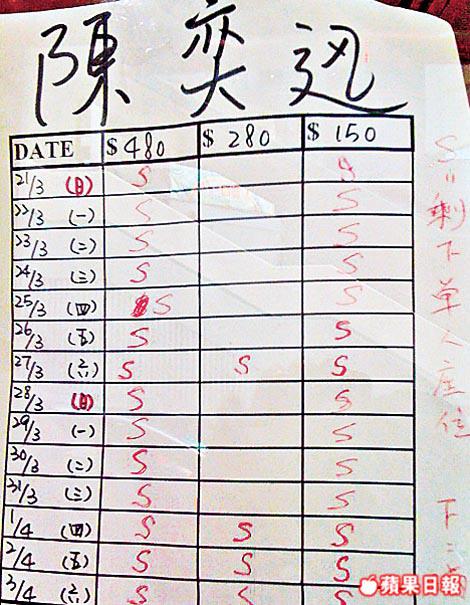 陳奕迅
DATE $480 $280 $150
21/3 (日) S S
22/3 (一) S S
23/3 (二) S S
24/3 (三) S S
25/3 (四) S S
26/3 (五) S S
27/3 (六) S S S
28/3 (日) S S
29/3 (一) S S
30/3 (二) S S
31/3 (三) S S
1/4 (四) S S S
2/4 (五) S S S
3/4 (六) S S S
S=剩下單人座位
下
蘋果日報